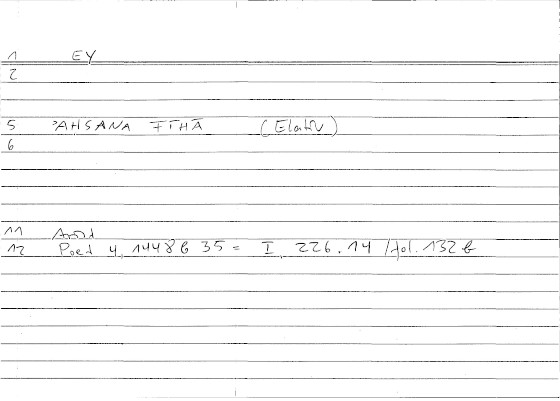 1 EY
2
5 ʾAHSANA FĪHĀ (Elativ)
6
11
12 Poet 4, 1448 b 35 = I, 226.14 / fol. 132 b